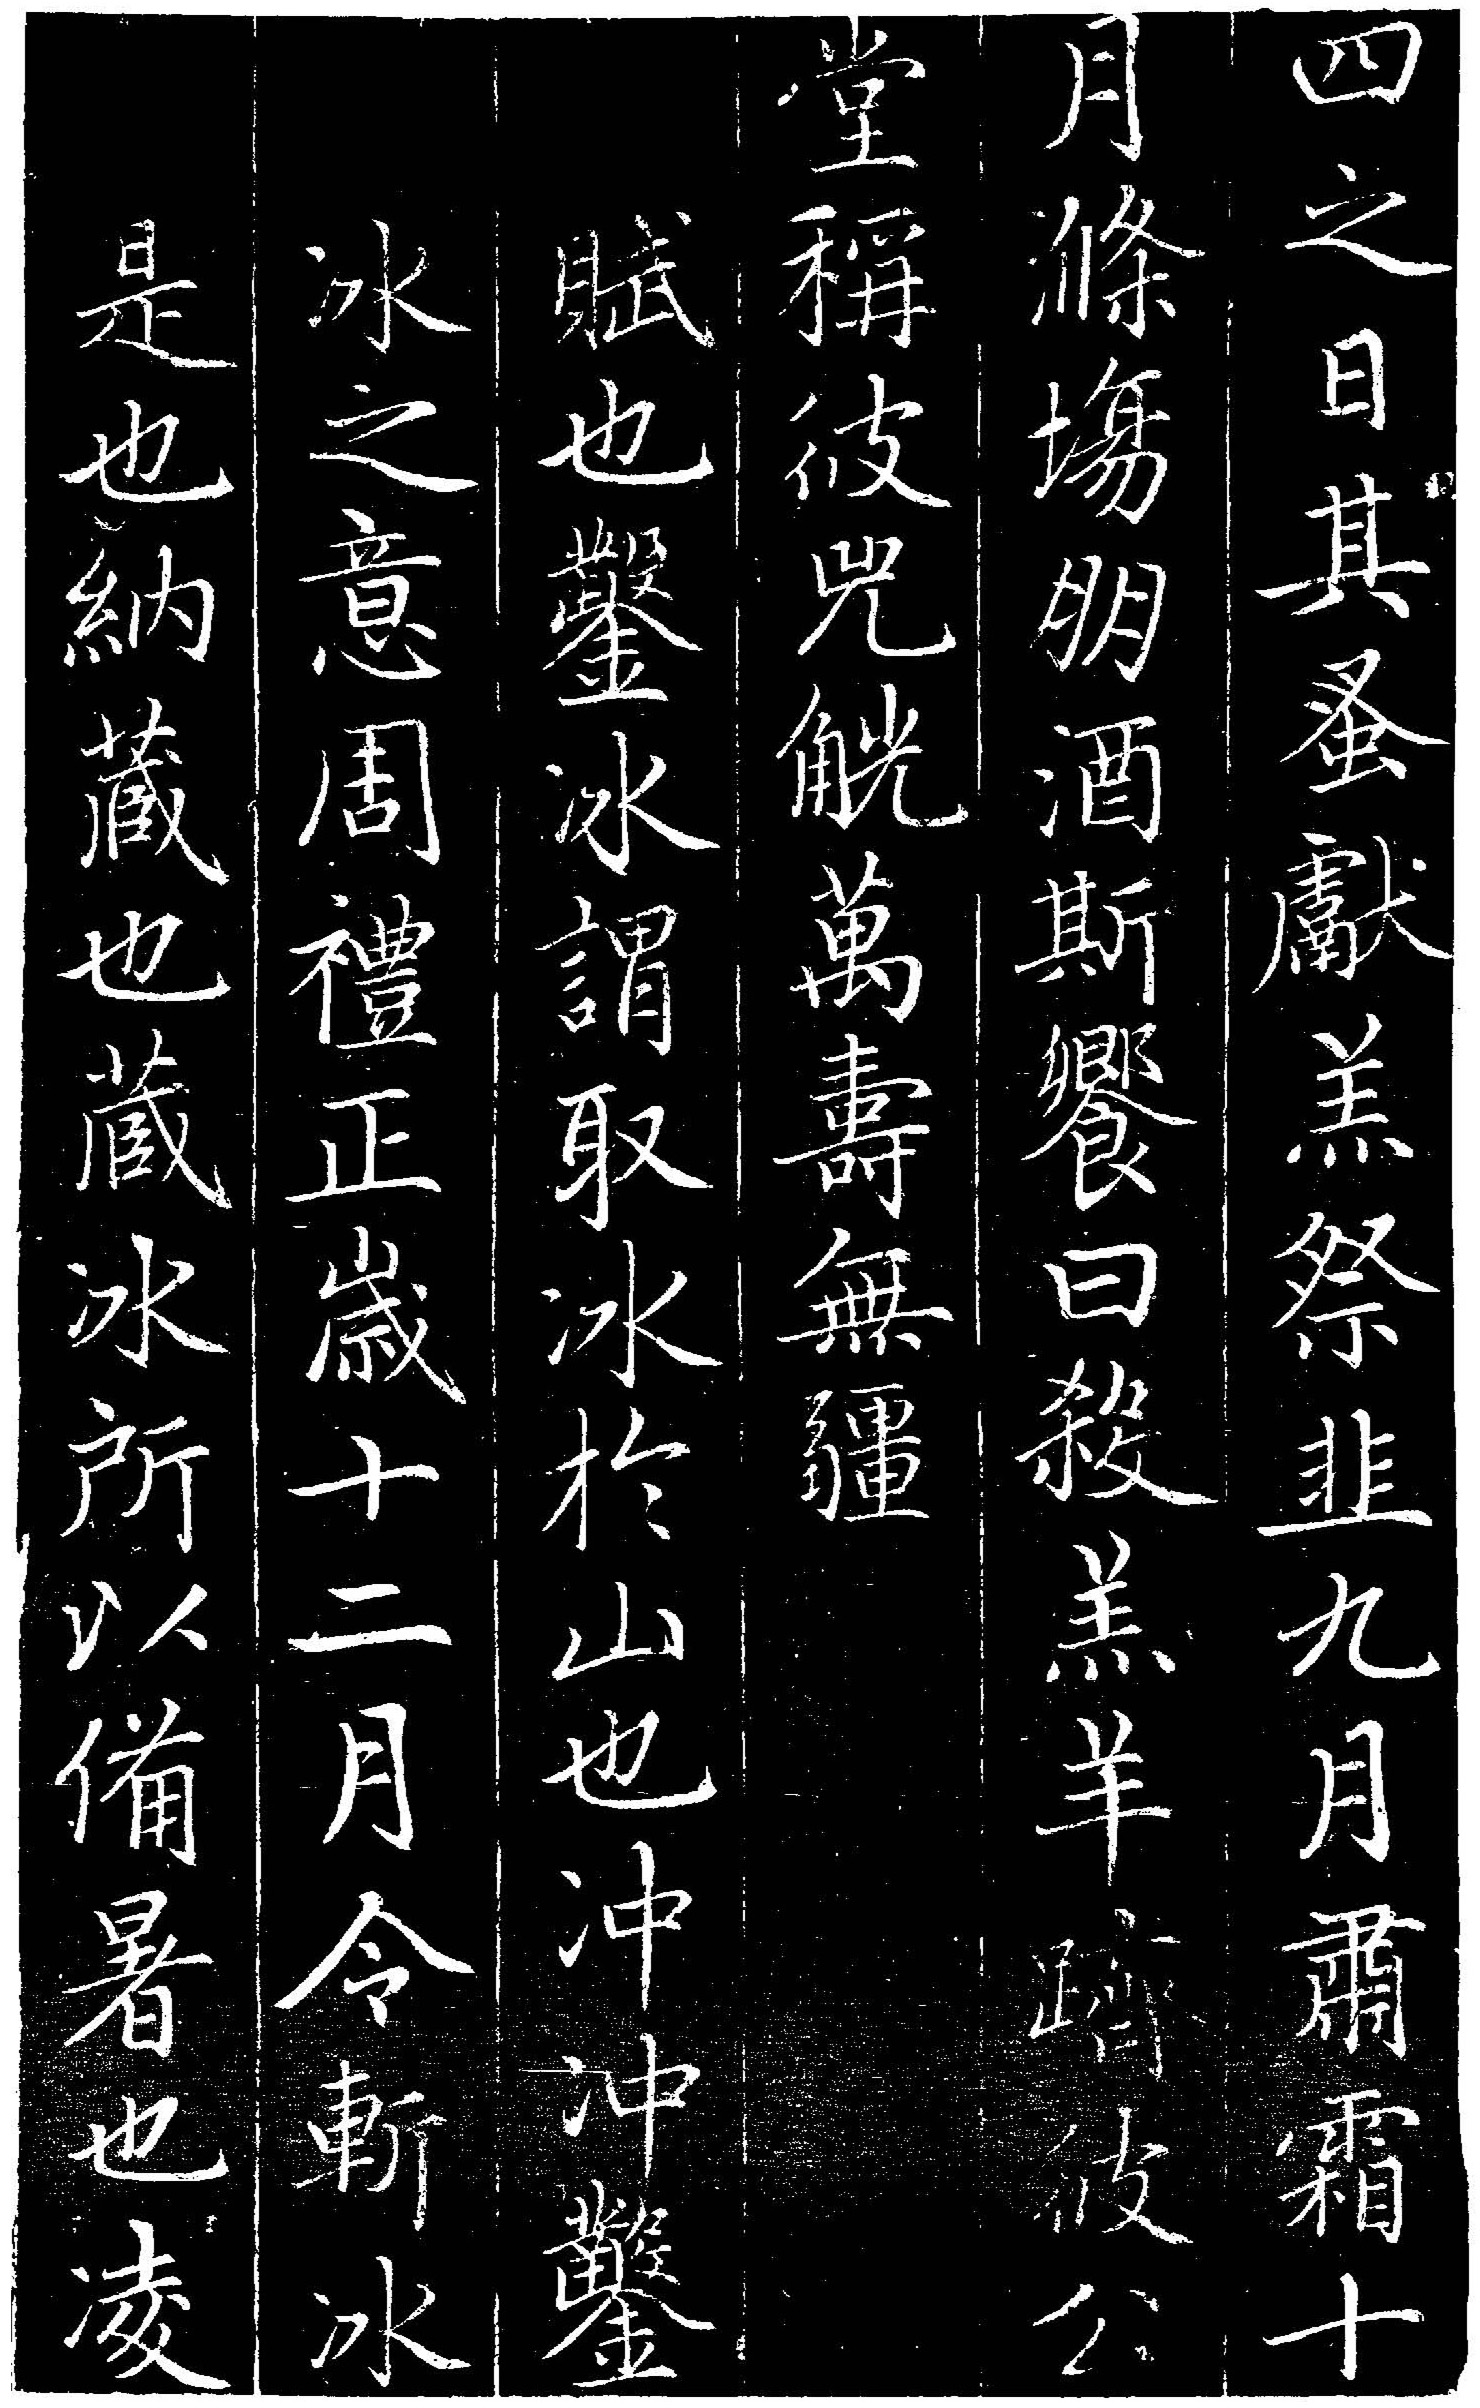 四之日其蚤獻羔祭韭九月肅霜十
月滌塲朋酒斯饗曰殺羔羊躋彼公
堂稱彼兕觥萬壽無疆
賦也鑿冰謂取冰於山也沖沖鑿
冰之意周禮正歲十二月令斬冰
是也納藏也藏冰所以備暑也凌